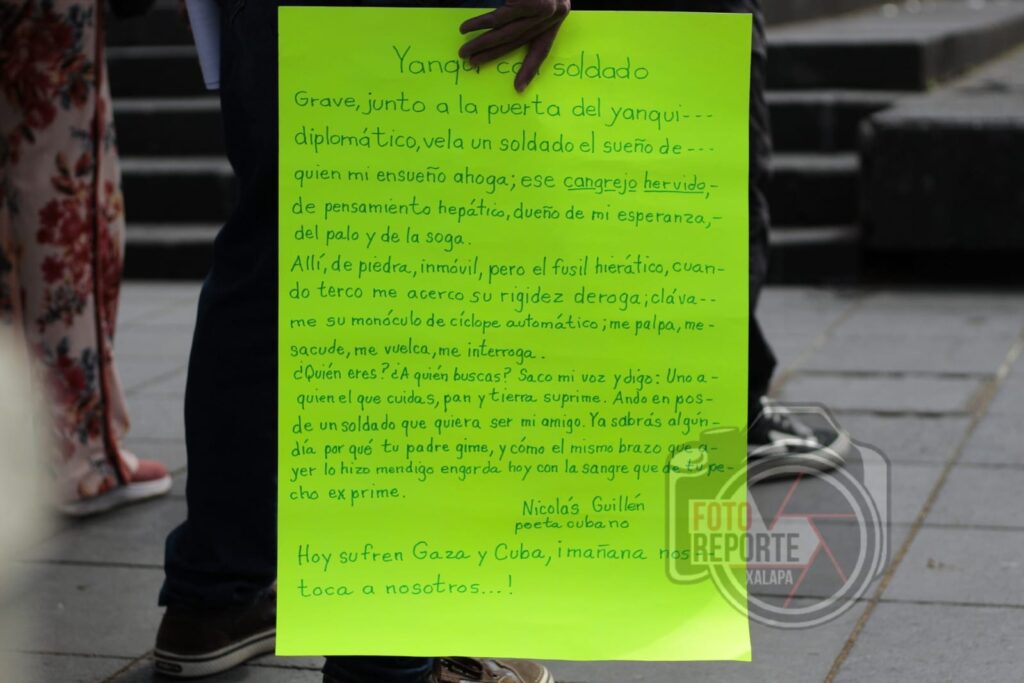 Yanqui con soldado
Grave, junto a la puerta del yanqui---
diplomático, vela un soldado el sueño de ---
quien mi ensueño ahoga; ese cangrejo hervido,-
de pensamiento hepático, dueño de mi esperanza,-
del palo y de la soga.
Allí, de piedra, inmóvil, pero el fusil hierático, cuan-
do terco me acerco su rigidez deroga; cláva--
me su monóculo de cíclope automático; me palpa, me-
sacude, me vuelca, me interroga.
¿Quién eres? ¿A quién buscas? Saco mi voz y digo: Uno a-
quien el que cuidas, pan y tierra suprime. Ando en pos-
de un soldado que quiera ser mi amigo. Ya sabrás algún-
día por qué tu padre gime, y cómo el mismo brazo que a-
yer lo hizo mendigo engorda hoy con la sangre que de tu pe-
cho exprime.
Nicolás Guillén
poeta cubano
Hoy sufren Gaza y Cuba, ¡mañana nos--
toca a nosotros...!
FOTO
REPORTE
XALAPA